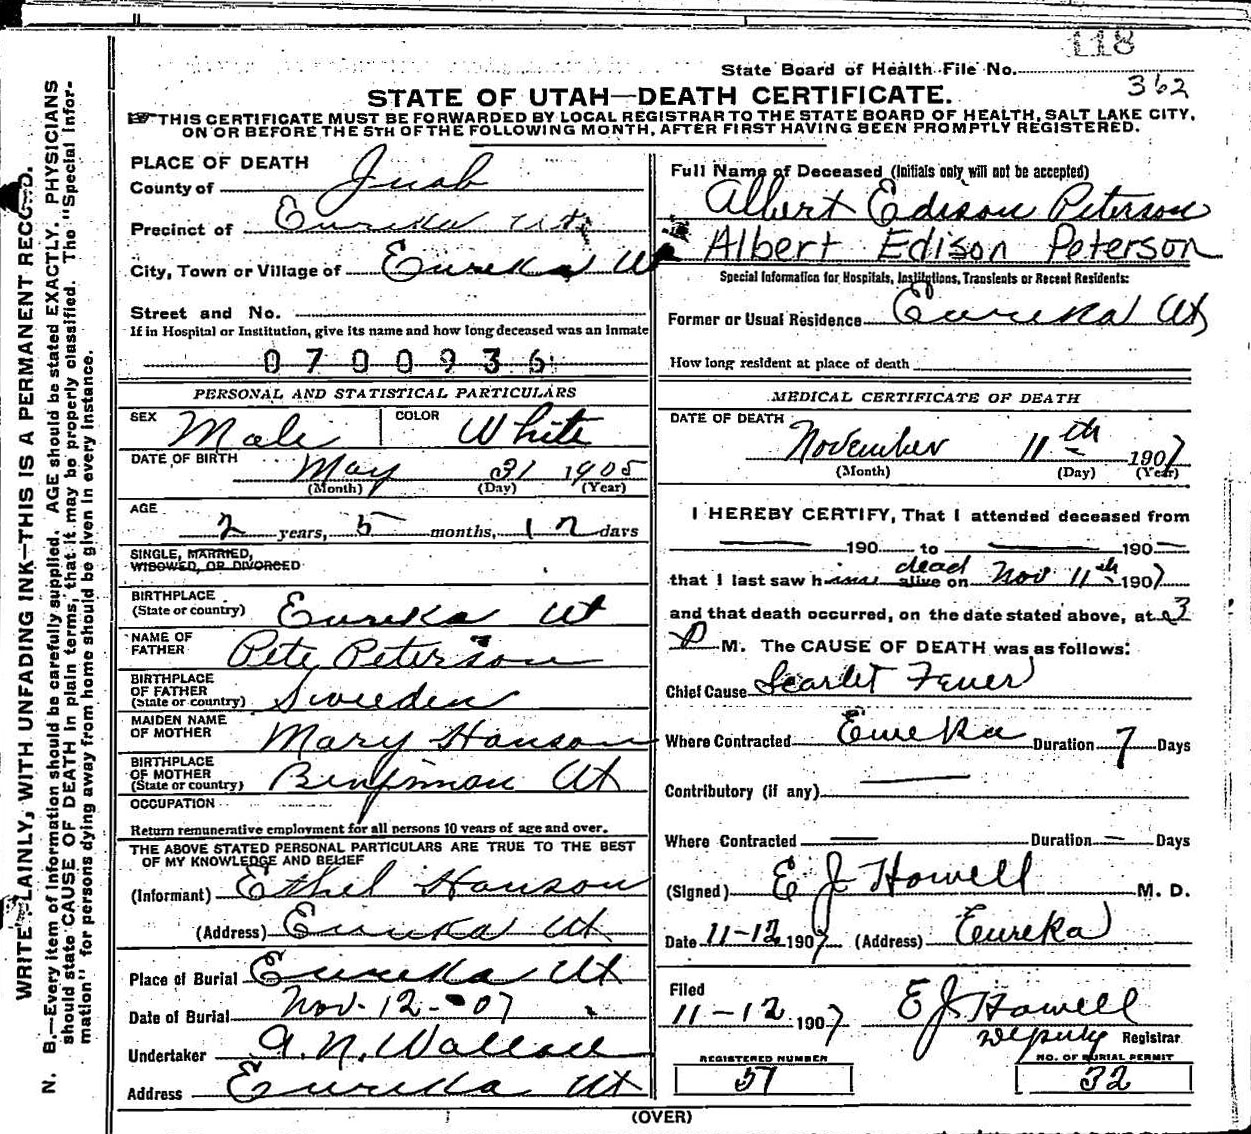 118
State Board of Health File No.
362
STATE OF UTAH—DEATH CERTIFICATE.
THIS CERTIFICATE MUST BE FORWARDED BY LOCAL REGISTRAR TO THE STATE BOARD OF HEALTH, SALT LAKE CITY,
ON OR BEFORE THE 5TH OF THE FOLLOWING MONTH, AFTER FIRST HAVING BEEN PROMPTLY REGISTERED.
WRITE PLAINLY, WITH UNFADING INK—THIS IS A PERMANENT RECORD.
N. B.—Every item of information should be carefully supplied. AGE should be stated EXACTLY. PHYSICIANS
should state CAUSE OF DEATH in plain terms, that it may be properly classified. The "Special Infor-
mation" for persons dying away from home should be given in every instance.
PLACE OF DEATH
County of Juab
Precinct of Eureka Ut
City, Town or Village of Eureka Ut
Street and No.
If in Hospital or Institution, give its name and how long deceased was an inmate
0700936
PERSONAL AND STATISTICAL PARTICULARS
SEX Male COLOR White
DATE OF BIRTH May 31 1905
(Month) (Day) (Year)
AGE
2 years, 5 months, 12 days
SINGLE, MARRIED,
WIDOWED, OR DIVORCED
BIRTHPLACE
(State or country) Eureka Ut
NAME OF
FATHER Pete Peterson
BIRTHPLACE
OF FATHER
(State or country) Sweeden
MAIDEN NAME
OF MOTHER Mary Hanson
BIRTHPLACE
OF MOTHER
(State or country) Benjiman Ut
OCCUPATION
Return remunerative employment for all persons 10 years of age and over.
THE ABOVE STATED PERSONAL PARTICULARS ARE TRUE TO THE BEST
OF MY KNOWLEDGE AND BELIEF
(Informant) Ethel Hanson
(Address) Eureka Ut
Place of Burial Eureka Ut
Date of Burial Nov-12-07
Undertaker A. N. Wallace
Address Eureka Ut
Full Name of Deceased (Initials only will not be accepted)
Albert Edison Peterson
Albert Edison Peterson
Special Information for Hospitals, Institutions, Transients or Recent Residents:
Former or Usual Residence Eureka Ut
How long resident at place of death
MEDICAL CERTIFICATE OF DEATH
DATE OF DEATH
November 11th 1907
(Month) (Day) (Year)
I HEREBY CERTIFY, That I attended deceased from
— 190 to — 190—
dead
that I last saw him alive on Nov 11th 1907
and that death occurred, on the date stated above, at 3
P M. The CAUSE OF DEATH was as follows:
Chief Cause Scarlet Fever
Where Contracted Eureka Duration 7 Days
Contributory (if any) —
Where Contracted — Duration — Days
(Signed) E J Howell M. D.
Date 11-12 1907 (Address) Eureka
Filed
11-12 1907 E J Howell
Deputy Registrar
REGISTERED NUMBER NO. OF BURIAL PERMIT
57 32
(OVER)